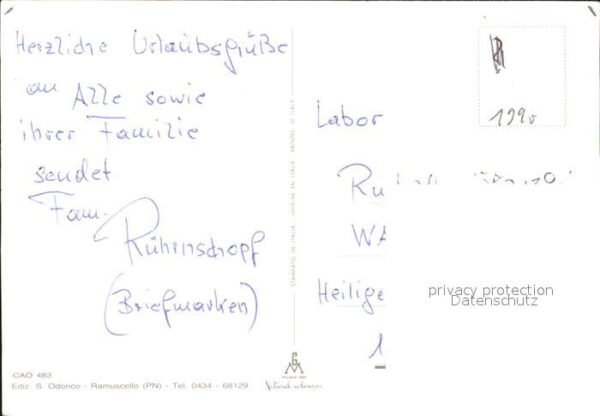 Herzliche Urlaubsgrüße
an Alle sowie
ihrer Familie
sendet
Fam.
Rührnschopf
(Briefmarken)
1990
Labor
Heilige
privacy protection
Datenschutz
STAMPATO IN ITALIA - IMPRIME EN ITALIE - PRINTED IN ITALY
CAO 483
Ediz. S. Odorico - Ramuscello (PN) - Tel. 0434 - 68129